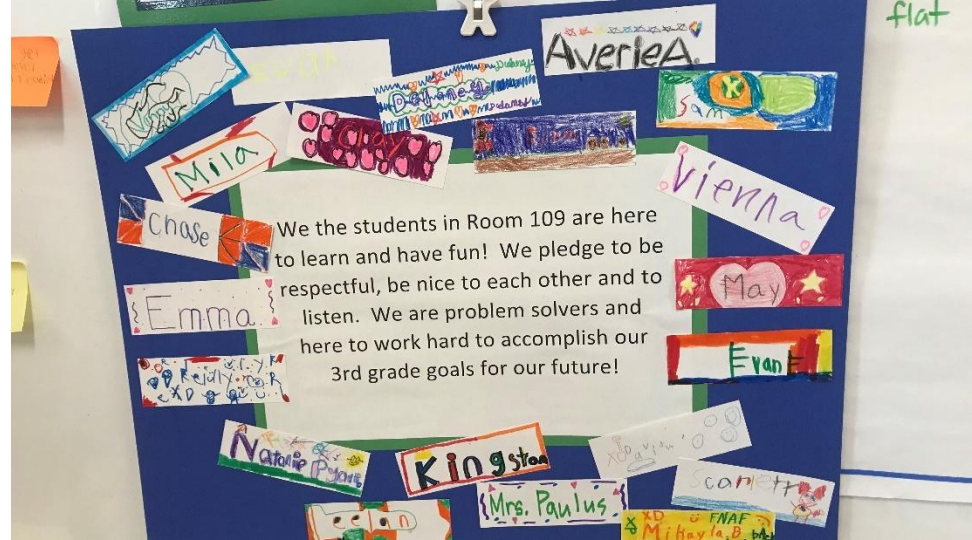 flat
AverieA.
Delaney
Sam
Mila
Vienna
Chase
We the students in Room 109 are here
to learn and have fun! We pledge to be
respectful, be nice to each other and to
listen. We are problem solvers and
here to work hard to accomplish our
3rd grade goals for our future!
May
Emma
Evan E
Natalie
Kingston
Scarlett
Mrs. Paulus
XD FNAF
Mikayla.B.